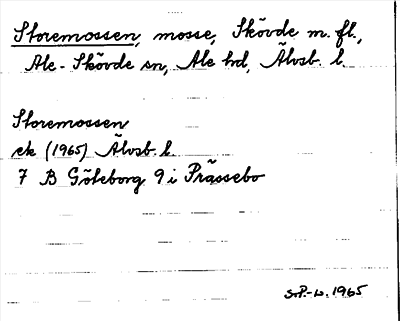 Storemossen, mosse, Skövde m. fl.,
Ale-Skövde sn, Ale hd, Älvsb. l.
Storemossen
ek (1965) Älvsb. l.
7 B Göteborg 9 i Prässebo
S.P.-L. 1965